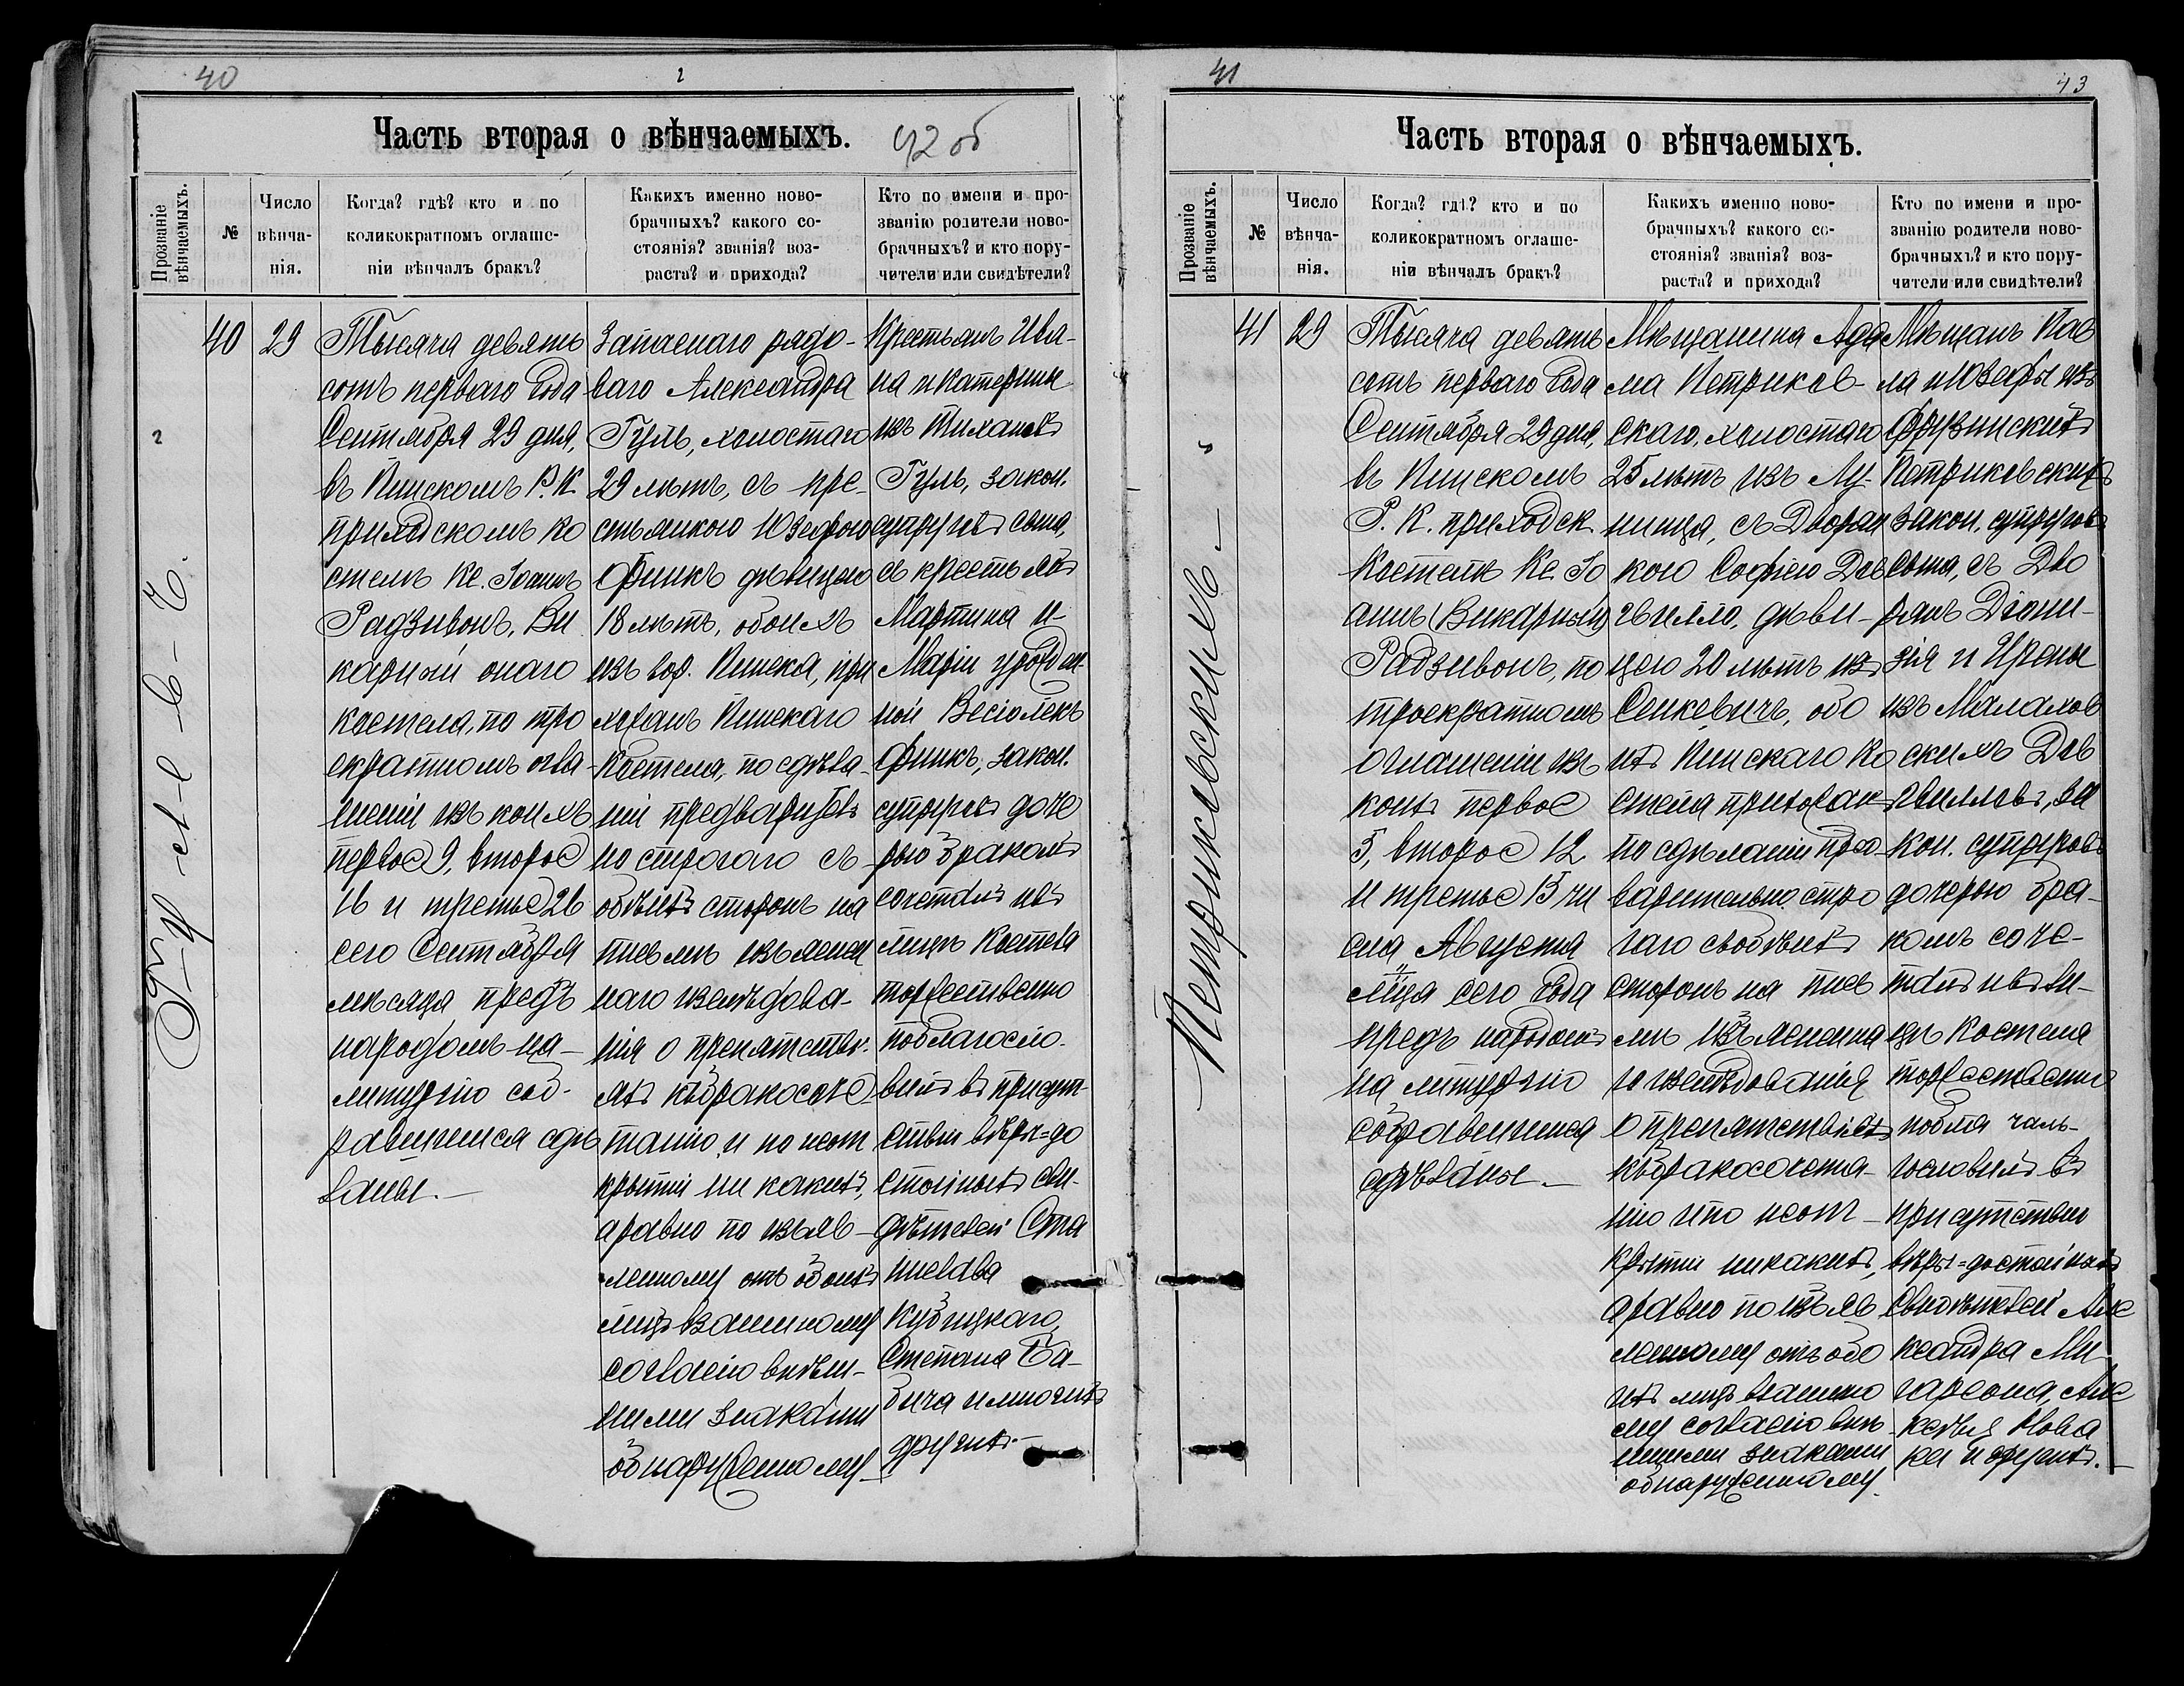 40
2
Часть вторая о вѣнчаемыхъ.
42 об
Прозваніе вѣнчаемыхъ.
№
Число вѣнча-нія.
Когда? гдѣ? кто и по
коликократномъ оглаше-
ніи вѣнчалъ бракъ?
Какихъ именно ново-
брачныхъ? какого со-
стоянія? званія? воз-
раста? и прихода?
Кто по имени и про-
званію родители ново-
брачныхъ? и кто пору-
чители или свидѣтели?
40
29
Тысяча девять
сотъ перваго года
Сентября 29 дня,
въ Пинскомъ Р.К.
приходскомъ ко
стелѣ Кс. Іоаннъ
Радзивонъ, Ви
карный онаго
костела, по тро
екратномъ огла-
шеніи изъ коихъ
первое 9, второе
16 и третье 26
сего Сентября
мѣсяца предъ
народомъ на
литургію соб-
равшимся сдѣ
ланы.
Запаснаго рядо-
ваго Александра
Гуль, холостаго
29 лѣтъ, съ кре-
стьянкою Юзефою
Финкъ дѣвицею
18 лѣтъ, обоихъ
изъ гор. Пинска, при
хожанъ Пинскаго
Костела, по сдѣла-
ніи предварител
но строгаго съ
обѣихъ сторонъ на
письмѣ изъяснен
наго изслѣдова-
нія о препятстві-
яхъ къ бракосоче-
танію, и по неот
крытіи ни какихъ,
а равно по изъяв-
ленному отъ обоихъ
лицъ взаимному
согласію внѣш-
ними знаками
обнаруженному
Крестьянъ Ива-
на и Катерины
изъ
Гуль, закон.
супруговъ сына,
съ крестьянъ
Мартина и
Маріи урожден-
ной Весіолекъ
Финкъ, закон.
супруговъ доче
рью бракомъ
сочеталъ и въ
лицѣ Костела
торжественно
поблагосло-
вилъ въ присут-
ствіи вѣры=до
стойныхъ сви-
дѣтелей Ста
нислава
Кубицкаго,
Степана Ба-
бича и многихъ
другихъ.
41
43
Часть вторая о вѣнчаемыхъ.
Прозваніе вѣнчаемыхъ.
№
Число вѣнча-нія.
Когда? гдѣ? кто и по
коликократномъ оглаше-
ніи вѣнчалъ бракъ?
Какихъ именно ново-
брачныхъ? какого со-
стоянія? званія? воз-
раста? и прихода?
Кто по имени и про-
званію родители ново-
брачныхъ? и кто пору-
чители или свидѣтели?
Петриковскихъ
41
29
Тысяча девять
сотъ перваго года
Сентября 29 дня,
въ Пинскомъ
Р. К. приходск.
Костелѣ Кс. Іо
аннъ (Викарный)
Радзивонъ, по
троекратномъ
оглашеніи изъ
коихъ первое
5, второе 12
и третье 15 чи
сла Августа
м-ца сего года
предъ народомъ
на литургію
собравшимся
сдѣланы.
Мѣщанина Ада
ма Петриков-
скаго, холостаго
25 лѣтъ изъ Лу-
нинца, съ Дворян
кою Софіею Дов
гвилло, дѣви-
цею 20 лѣтъ изъ
Сенкевичъ, обо
ихъ Пинскаго Ко
стела прихожан
по сдѣланіи пред-
варительно стро
гаго съ обѣихъ
сторонъ на пись
мѣ изъясненна
го изслѣдованія
о препятствіяхъ
къ бракосочета-
нію и по неот-
крытіи никакихъ,
а равно по изъяв
ленному отъ обо
ихъ лицъ взаимно
му согласію внѣ
шними знаками
обнаруженному.
Мѣщанъ Пав
ла и Юзефы изъ
Петриковскихъ
закон. супруговъ
сына, съ Дво
рянъ Діони-
зія и Ирены
изъ Малахов
скихъ Дов
гвилловъ, за
кон. супруговъ
дочерью бра-
комъ соче-
талъ и въ ли-
цѣ Костела
торжественно
вѣры=достойныхъ
Свидѣтелей Але
ксандра Ми
Але
ксѣя Нова
ка и другихъ.